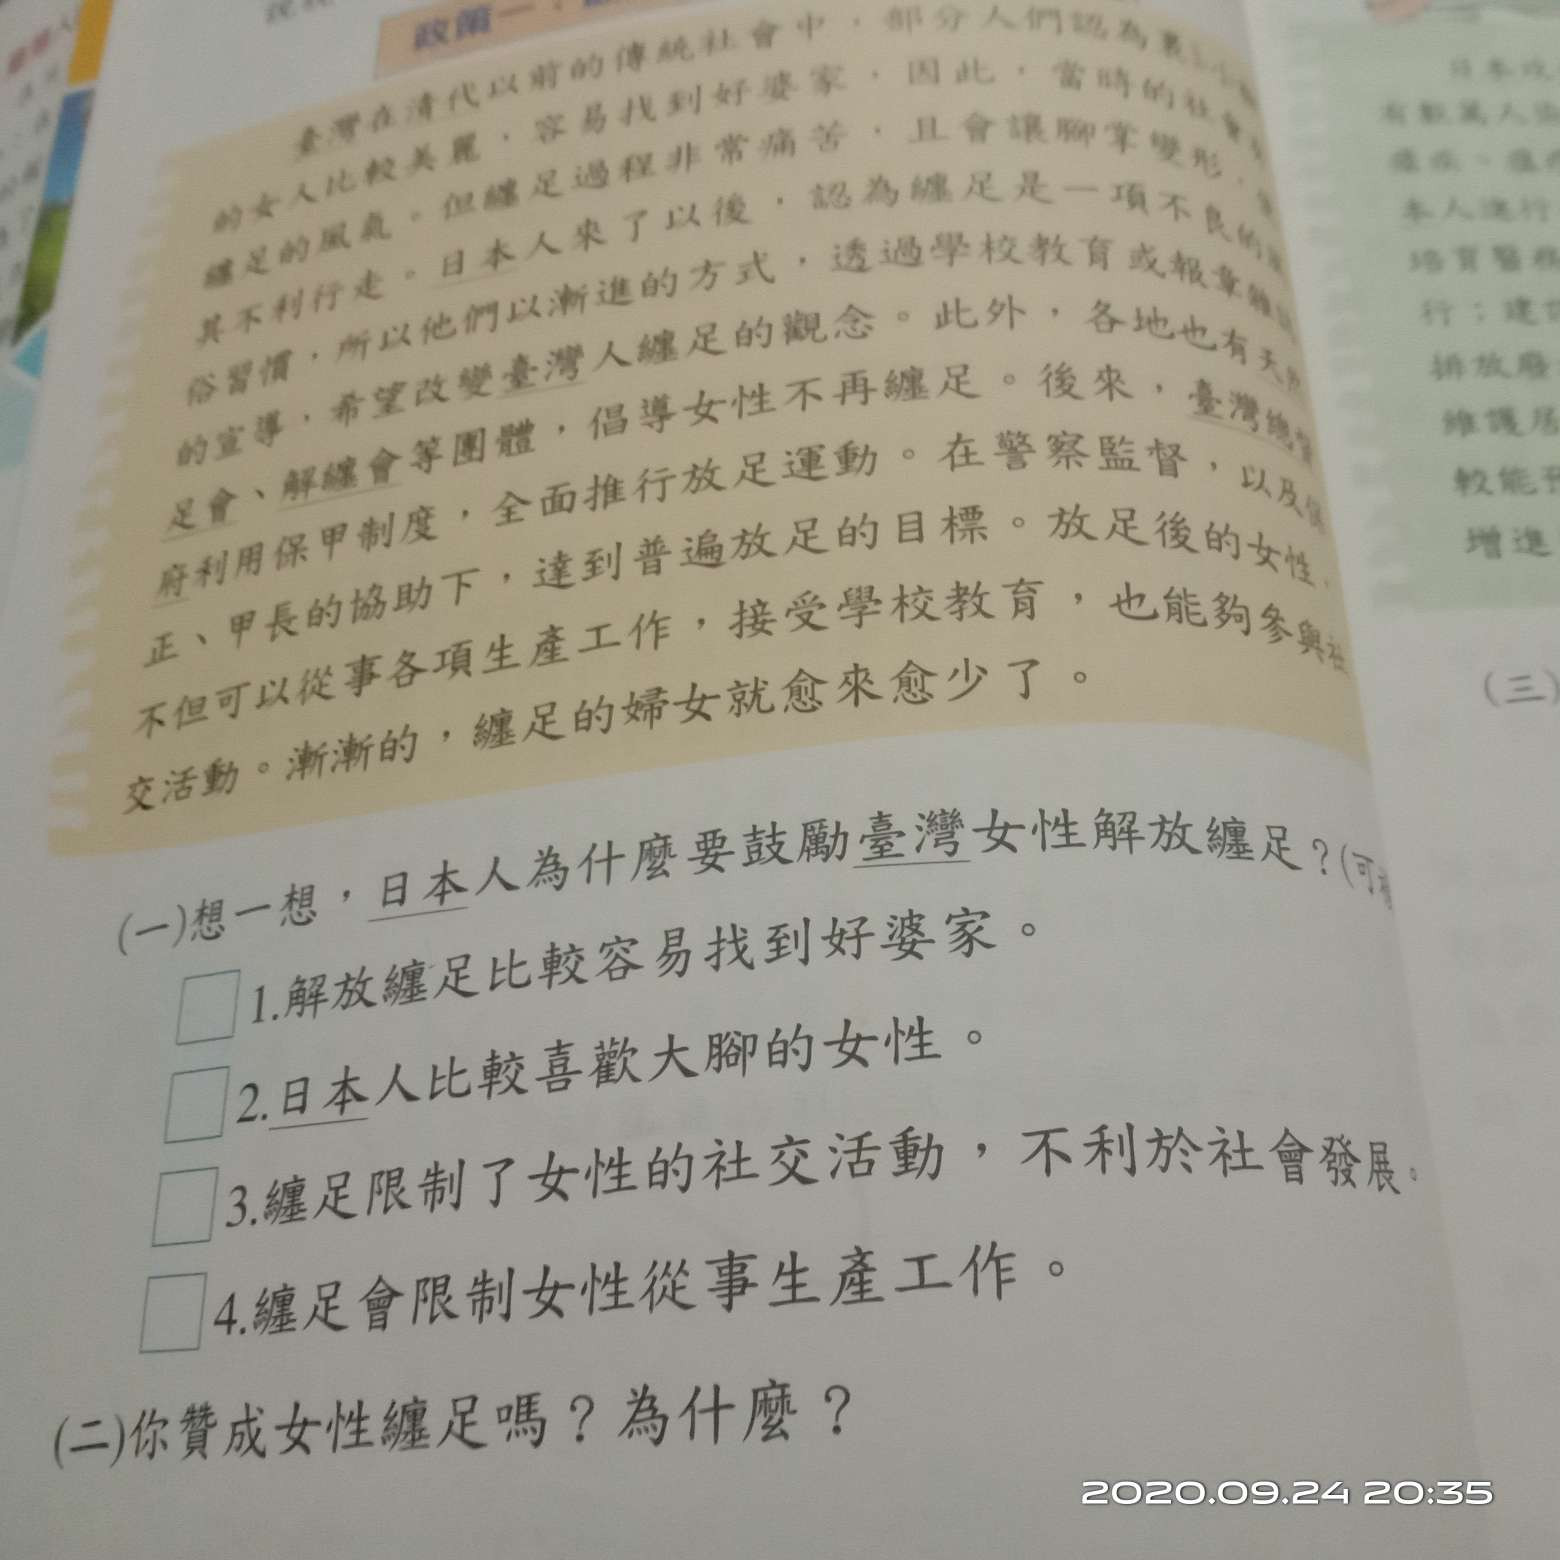 政策一
臺灣在清代以前的傳統社會中，部分人們認為裹小腳
的女人比較美麗，容易找到好婆家，因此，當時的社會
纏足的風氣。但纏足過程非常痛苦，且會讓腳掌變形，
其不利行走。日本人來了以後，認為纏足是一項不良的
俗習慣，所以他們以漸進的方式，透過學校教育或報章雜
的宣導，希望改變臺灣人纏足的觀念。此外，各地也有天
足會、解纏會等團體，倡導女性不再纏足。後來，臺灣總督
府利用保甲制度，全面推行放足運動。在警察監督，以及保
正、甲長的協助下，達到普遍放足的目標。放足後的女性，
不但可以從事各項生產工作，接受學校教育，也能夠參與社
交活動。漸漸的，纏足的婦女就愈來愈少了。
(一)想一想，日本人為什麼要鼓勵臺灣女性解放纏足？(可
1.解放纏足比較容易找到好婆家。
2.日本人比較喜歡大腳的女性。
3.纏足限制了女性的社交活動，不利於社會發展。
4.纏足會限制女性從事生產工作。
(二)你贊成女性纏足嗎？為什麼？
有數萬人
本人進行
培育醫
行；建
排放廢
維護居
較能
增進
(三)
2020.09.24 20:35